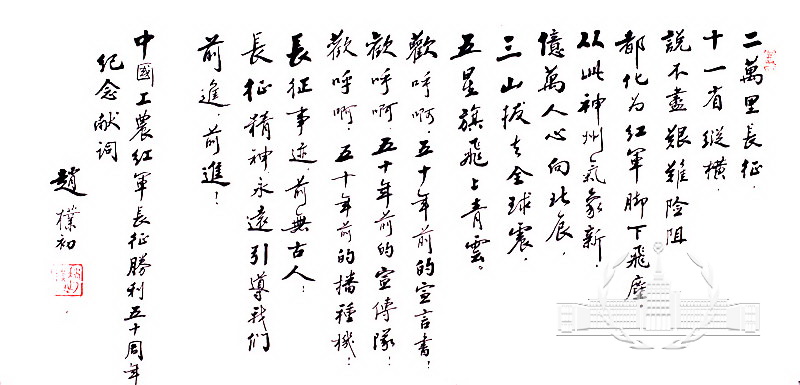 二萬里長征，
十一省縱橫，
説不盡艱難险阻
都化为红軍脚下飛塵，
从此神州氣象新，
億萬人心向北辰，
三山拔去全球震，
五星旗飛上青雲。
歡呼啊，五十年前的宣言書！
歡呼啊，五十年前的宣傳隊！
歡呼啊，五十年前的播種機！
長征事迹，前無古人！
長征精神永遠引導我们
前進，前進！
中國工農红軍長征勝利五十周年
纪念献词
趙樸初